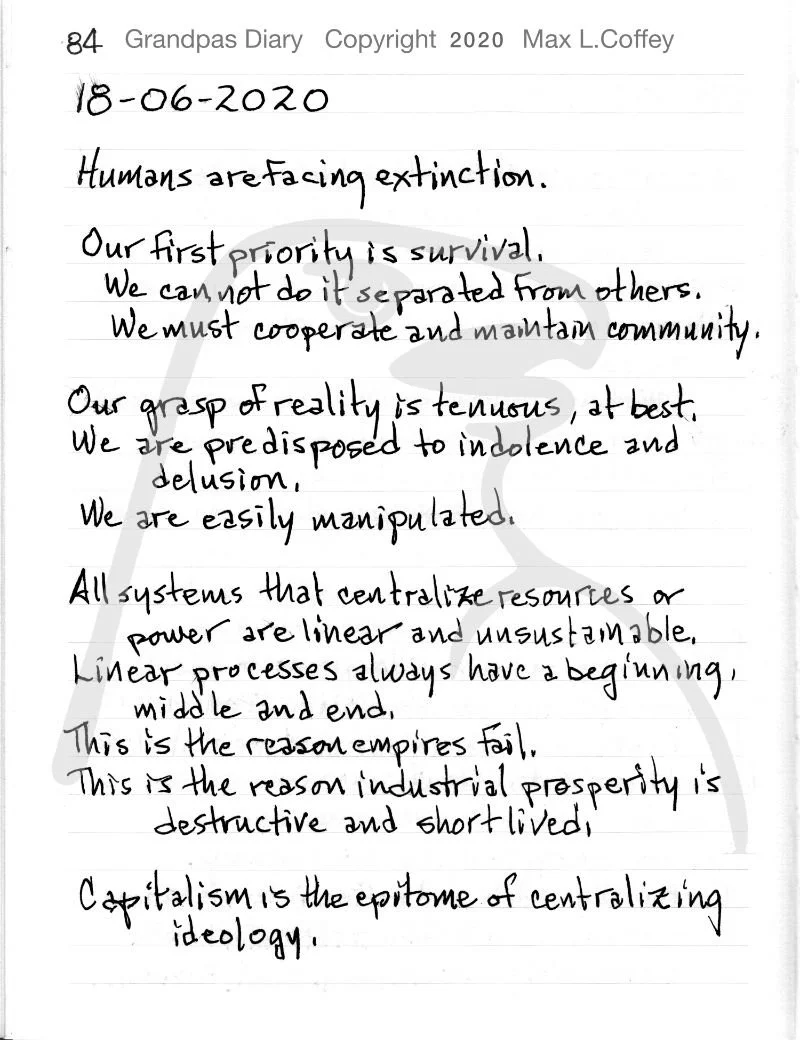 84 Grandpas Diary Copyright 2020 Max L.Coffey
18-06-2020
Humans are facing extinction.
Our first priority is survival.
We cannot do it separated from others.
We must cooperate and maintain community.
Our grasp of reality is tenuous, at best.
We are predisposed to indolence and
delusion.
We are easily manipulated.
All systems that centralize resources or
power are linear and unsustainable.
Linear processes always have a beginning,
middle and end.
This is the reason empires fail.
This is the reason industrial prosperity is
destructive and short lived.
Capitalism is the epitome of centralizing
ideology.